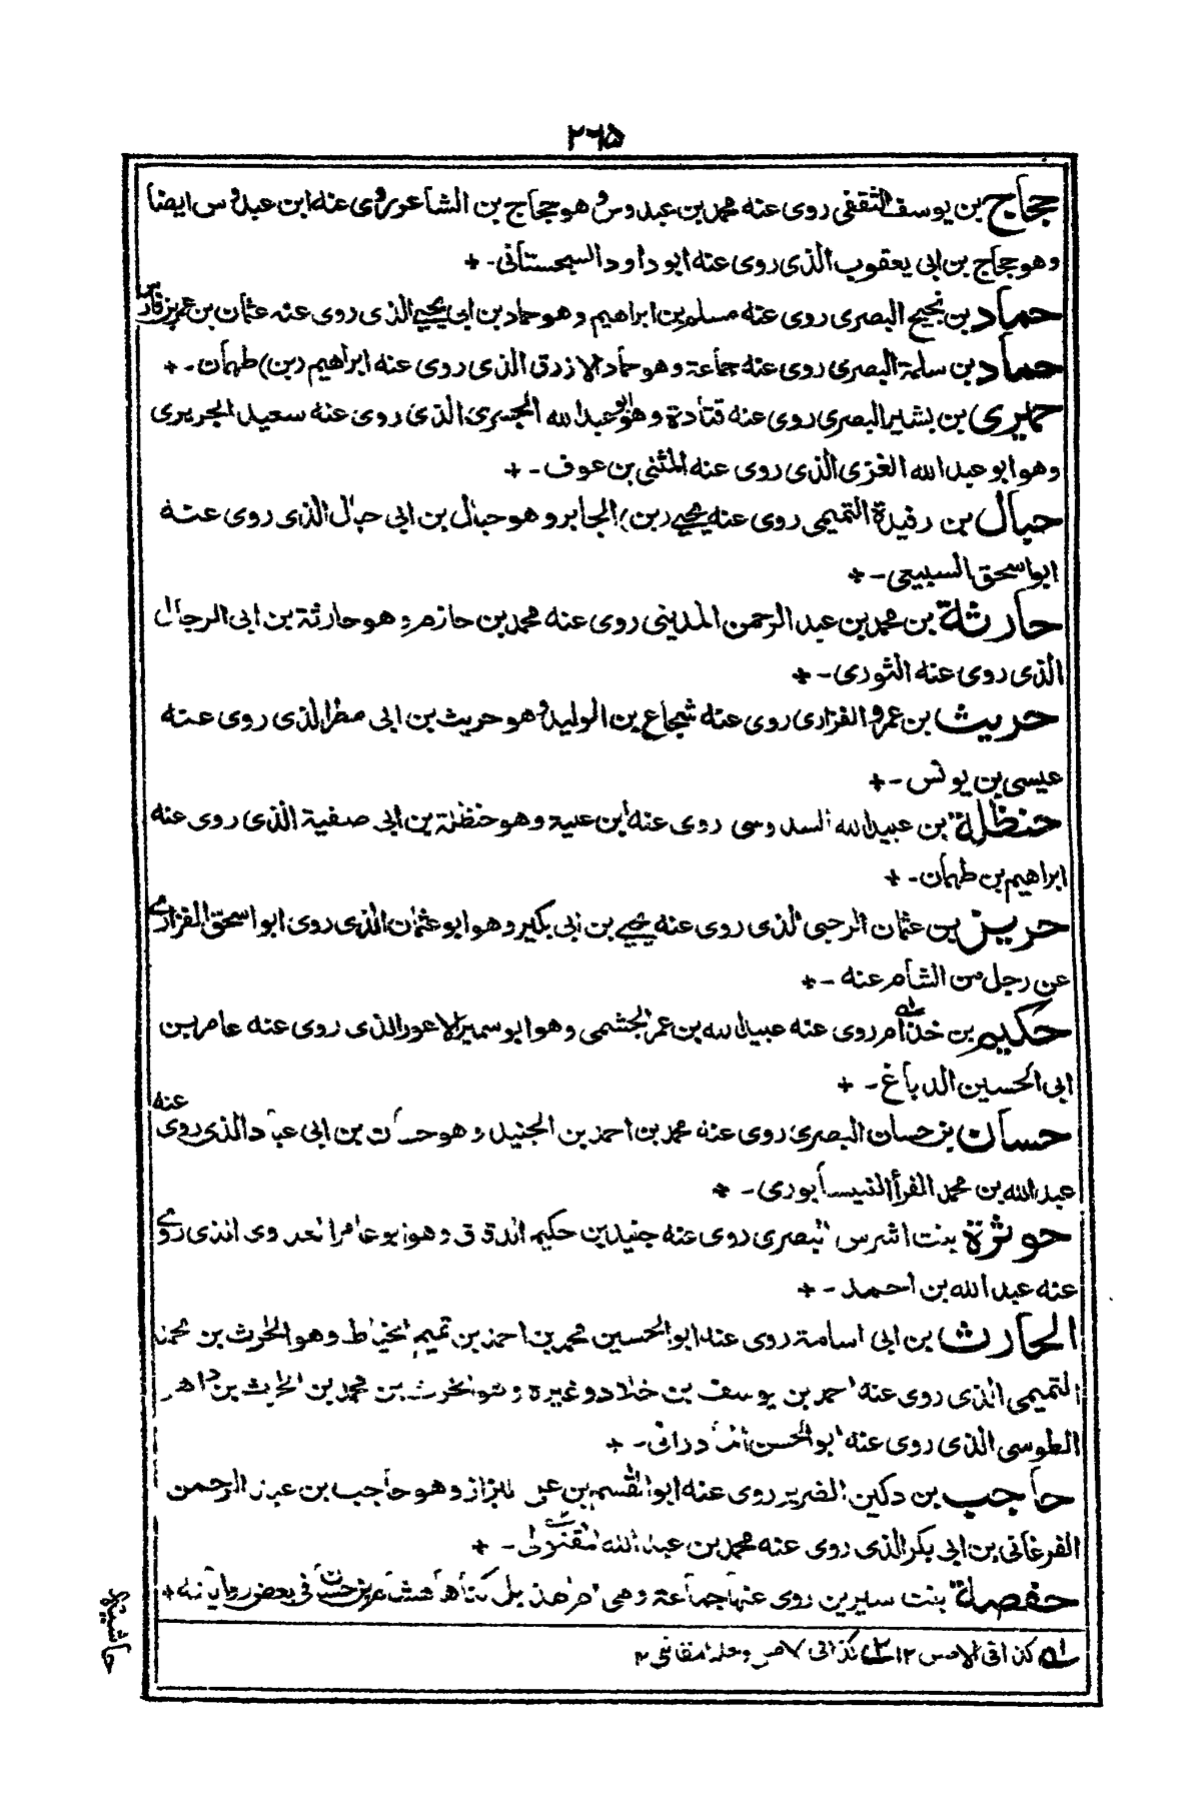 ٢٦٥
حجاج بن يوسف الثقفى روى عنه محمد بن عبدوس وهو حجاج بن الشاعر روى عنه ابن عبدوس ايضا
وهو حجاج بن ابى يعقوب الذى روى عنه ابو داود السجستانى - +
حماد بن نجيح البصرى روى عنه مسلم بن ابراهيم وهو حماد بن ابى يحيے الذى روى عنه عثمان بن عمر بن فارس
حماد بن سلمة البصرى روى عنه جماعة وهو حماد الازرق الذى روى عنه ابراهيم (بن) طهمان - +
حميرى بن بشير البصرى روى عنه قتادة وهو ابو عبد الله الجسرى الذى روى عنه سعيد الجريرى
وهو ابو عبد الله العنزى الذى روى عنه المثنى بن عوف - +
حبال بن رفيدة التميمى روى عنه يحيے (بن) الجابر وهو حبال بن ابى حبال الذى روى عنه
ابو اسحق السبيعى - +
حارثة بن محمد بن عبد الرحمن المدينى روى عنه محمد بن حازم وهو حارثة بن ابى الرجال
الذى روى عنه الثورى - +
حريث بن عمرو الفزارى روى عنه شجاع بن الوليد وهو حريث بن ابى مطر الذى روى عنه
عيسى بن يونس - +
حنظلة بن عبيد الله السدوسى روى عنه ابن علية وهو حنظلة بن ابى صفية الذى روى عنه
ابراهيم بن طهمان - +
حريز بن عثمان الرحبى الذى روى عنه يحيے بن ابى بكير وهو ابو عثمان الذى روى ابو اسحق الفزارے
عن رجل من الشام عنه - +
حكيم بن خذام روى عنه عبيد الله بن عمر الجشمى وهو ابو سمير الاعور الذى روى عنه عامر بن
ابى الحسين الدباغ - +
حسان بن حسان البصرى روى عنه محمد بن احمد بن الجنيد وهو حسان بن ابى عباد الذى روى عنه
عبد الله بن محمد الفرأ النيسابورى - +
حوثرة بنت اشرس البصرى روى عنه جنيد بن حكيم الدقاق وهو ابو عامر العدوى الذى روے
عنه عبد الله بن احمد - +
الحارث بن ابى اسامة روى عنه ابو الحسين محمد بن احمد بن تميم الخياط وهو الحرث بن محمد
التميمى الذى روى عنه احمد بن يوسف بن خلاد وغيره وهو الحرث بن محمد بن الحرث بن داهر
الطوسى الذى روى عنه ابو الحسن
حاجب بن دكين الضرير روى عنه ابو القسم بن على البزاز وهو حاجب بن عبد الرحمن
الفرغانى بن ابى بكر الذى روى عنه محمد بن عبد الله
حفصة بنت سيرين روى عنها جماعة وهى ام هذيل كناها هشام بن حسان فى بعض رواياته +
كذا فى الاصل ١٢ كذا فى الاصل